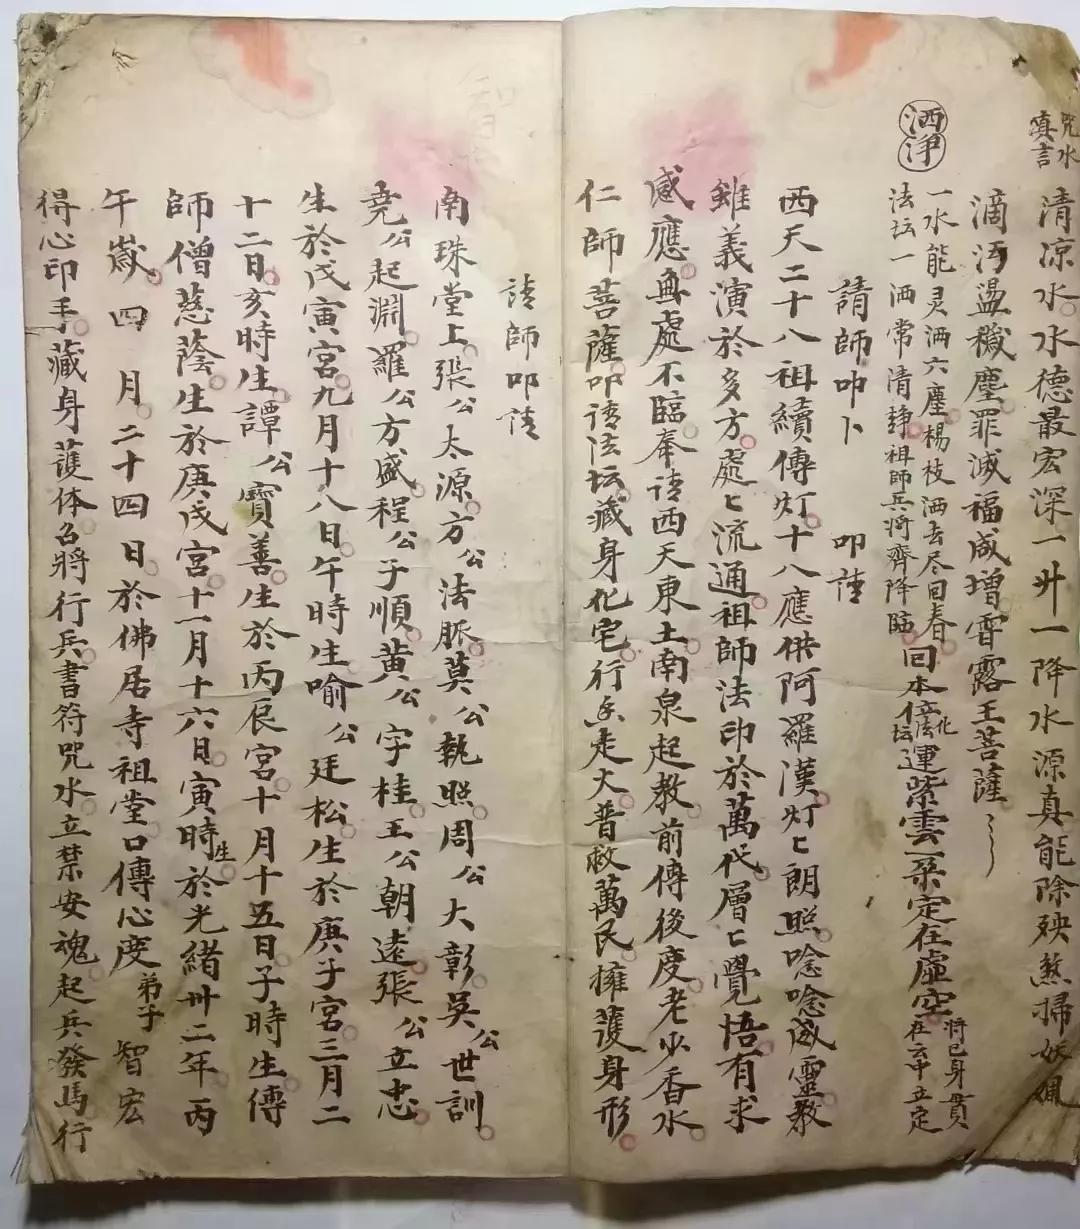 咒水
真言
清凉水水德最宏深一升一降水源真能除殃煞掃妖氛
滴污盪穢塵罪滅福咸增雷露王菩薩
洒淨
一水能灵洒六塵楊枝洒去尽回春
法坛一洒常清靜祖師兵将齊降臨
回本位 立法坛 化運紫雲一朵定在虛空
将已身貫
在云中立定
請師叩卜 叩請
西天二十八祖續傳灯十八應供阿羅漢灯〻朗照唸唸咸靈教
雖義演於多方處〻流通祖師法印於萬代層〻覺悟有求
感應無處不臨奉请西天東土南泉起教前傳後度老少香水
仁師菩薩叩请法坛藏身化宅行走大普救萬民擁護身形
请師叩请
南珠堂上張公太源方公法脈莫公執照周公大彰吳公世訓
堯公起淵羅公方盛程公子順黃公字桂王公朝遠張公立忠
生於戊寅宮九月十八日午時生喻公廷松生於庚子宮三月二
十二日亥時生譚公寶善生於丙辰宮十月十五日子時生傳
師僧慈蔭生於庚戌宮十一月十六日寅時生於光緒卅二年丙
午歲四月二十四日於佛居寺祖堂口傳心度弟子智宏
得心印手藏身護体召將行兵書符咒水立禁安魂起兵發馬行